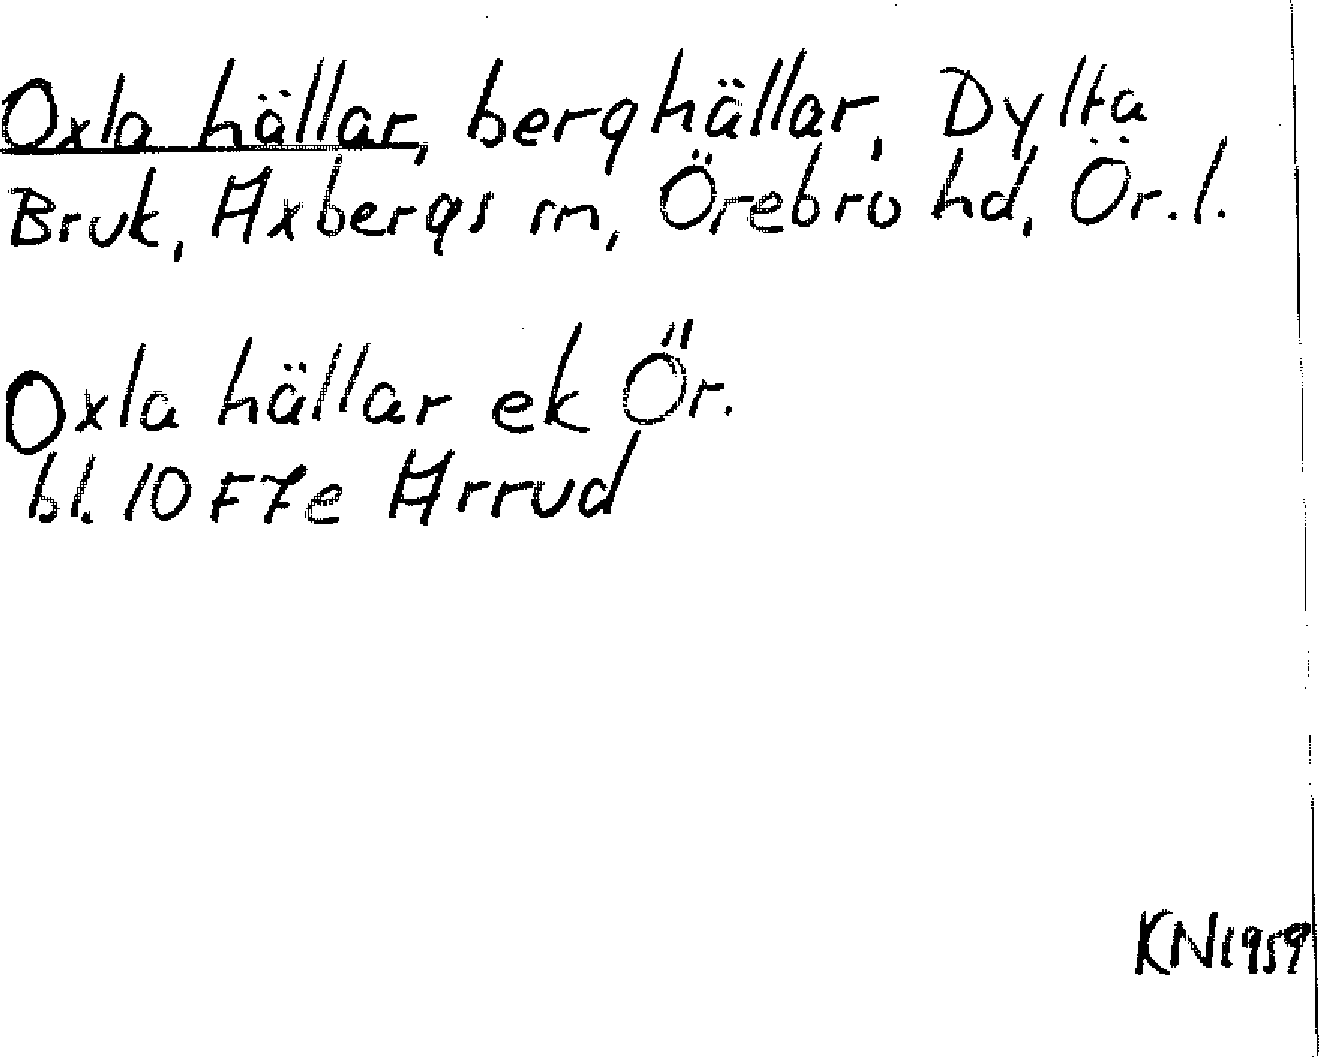 Oxla hällar, berghällar, Dylta
Bruk, Axbergs sn, Örebro hd, Ör. l.
Oxla hällar ek Ör.
bl. 10 F7e Arrud
KN 1959